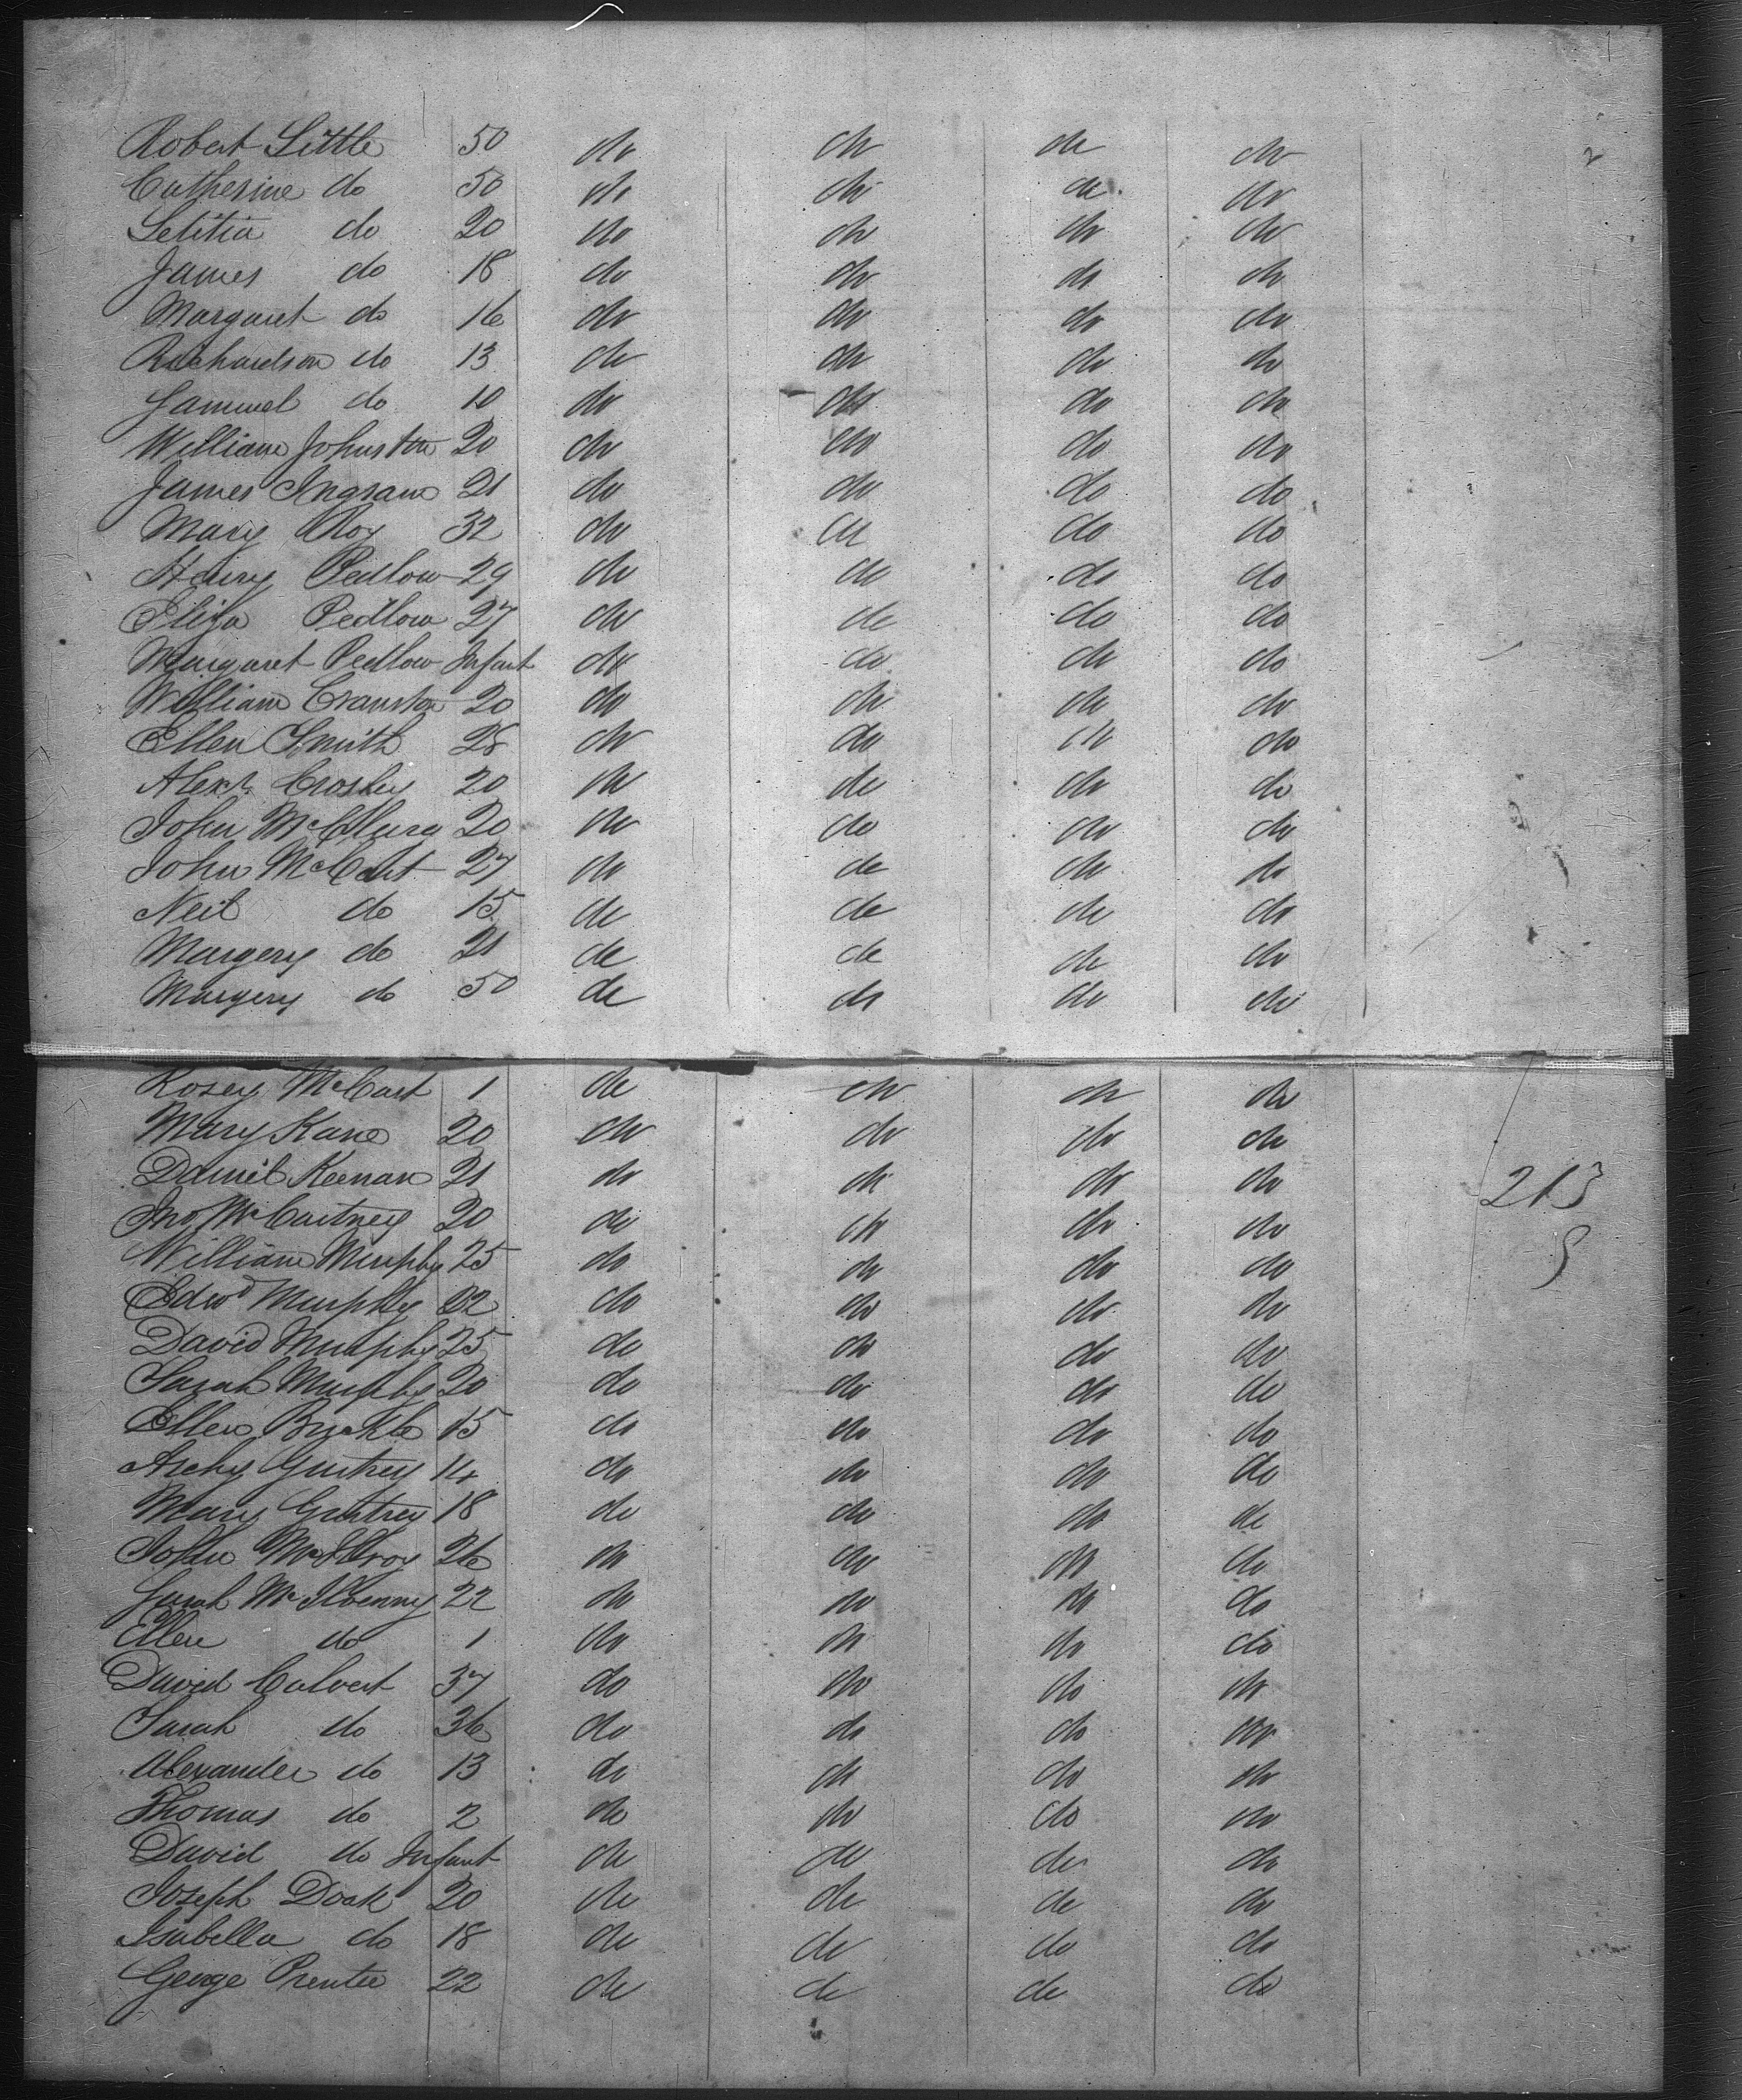 Robert Little 50 do do do do
Catherine do 50 do do do do
Letitia do 20 do do do do
James do 18 do do do do
Margaret do 16 do do do do
Richardson do 13 do do do do
Samuel do 10 do do do do
William Johnston 20 do do do do
James Ingram 21 do do do do
Mary Roy 32 do do do do
Henry Pedlow 29 do do do do
Eliza Pedlow 27 do do do do
Margaret Pedlow Infant do do do do
William Cranston 20 do do do do
Ellen Smith 28 do do do do
Alexr Crosby 20 do do do do
John McClurg 20 do do do do
John McCart 27 do do do do
Neil do 15 do do do do
Margery do 21 do do do do
Margery do 50 do do do do
Rosey McCart 1 do do do do
Mary Kane 20 do do do do
Daniel Keenan 21 do do do do
213
Jno McCartney 20 do do do do
William Murphy 25 do do do do
Edwd Murphy 22 do do do do
David Murphy 25 do do do do
Sarah Murphy 20 do do do do
Ellen 15 do do do do
Archy 14 do do do do
Mary 18 do do do do
John McIlroy 26 do do do do
Sarah McIlvenny 22 do do do do
Ellen do 1 do do do do
David Calvert 37 do do do do
Sarah do 36 do do do do
Alexander do 13 do do do do
Thomas do 2 do do do do
David do Infant do do do do
Joseph Doak 20 do do do do
Isabella do 18 do do do do
George Prenter 22 do do do do